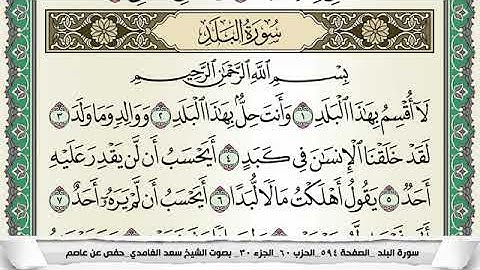 سُورَةُ الْبَلَدِ
بِسْمِ اللَّهِ الرَّحْمَٰنِ الرَّحِيمِ
لَا أُقْسِمُ بِهَٰذَا الْبَلَدِ ١ وَأَنتَ حِلٌّ بِهَٰذَا الْبَلَدِ ٢ وَوَالِدٍ وَمَا وَلَدَ ٣
لَقَدْ خَلَقْنَا الْإِنسَٰنَ فِي كَبَدٍ ٤ أَيَحْسَبُ أَن لَّن يَقْدِرَ عَلَيْهِ
أَحَدٌ ٥ يَقُولُ أَهْلَكْتُ مَالًا لُّبَدًا ٦ أَيَحْسَبُ أَن لَّمْ يَرَهُ أَحَدٌ ٧
سورة البلد _الصفحة ٥٩٤_الحزب ٦٠_الجزء ٣٠_ بصوت الشيخ سعد الغامدي_حفص عن عاصم